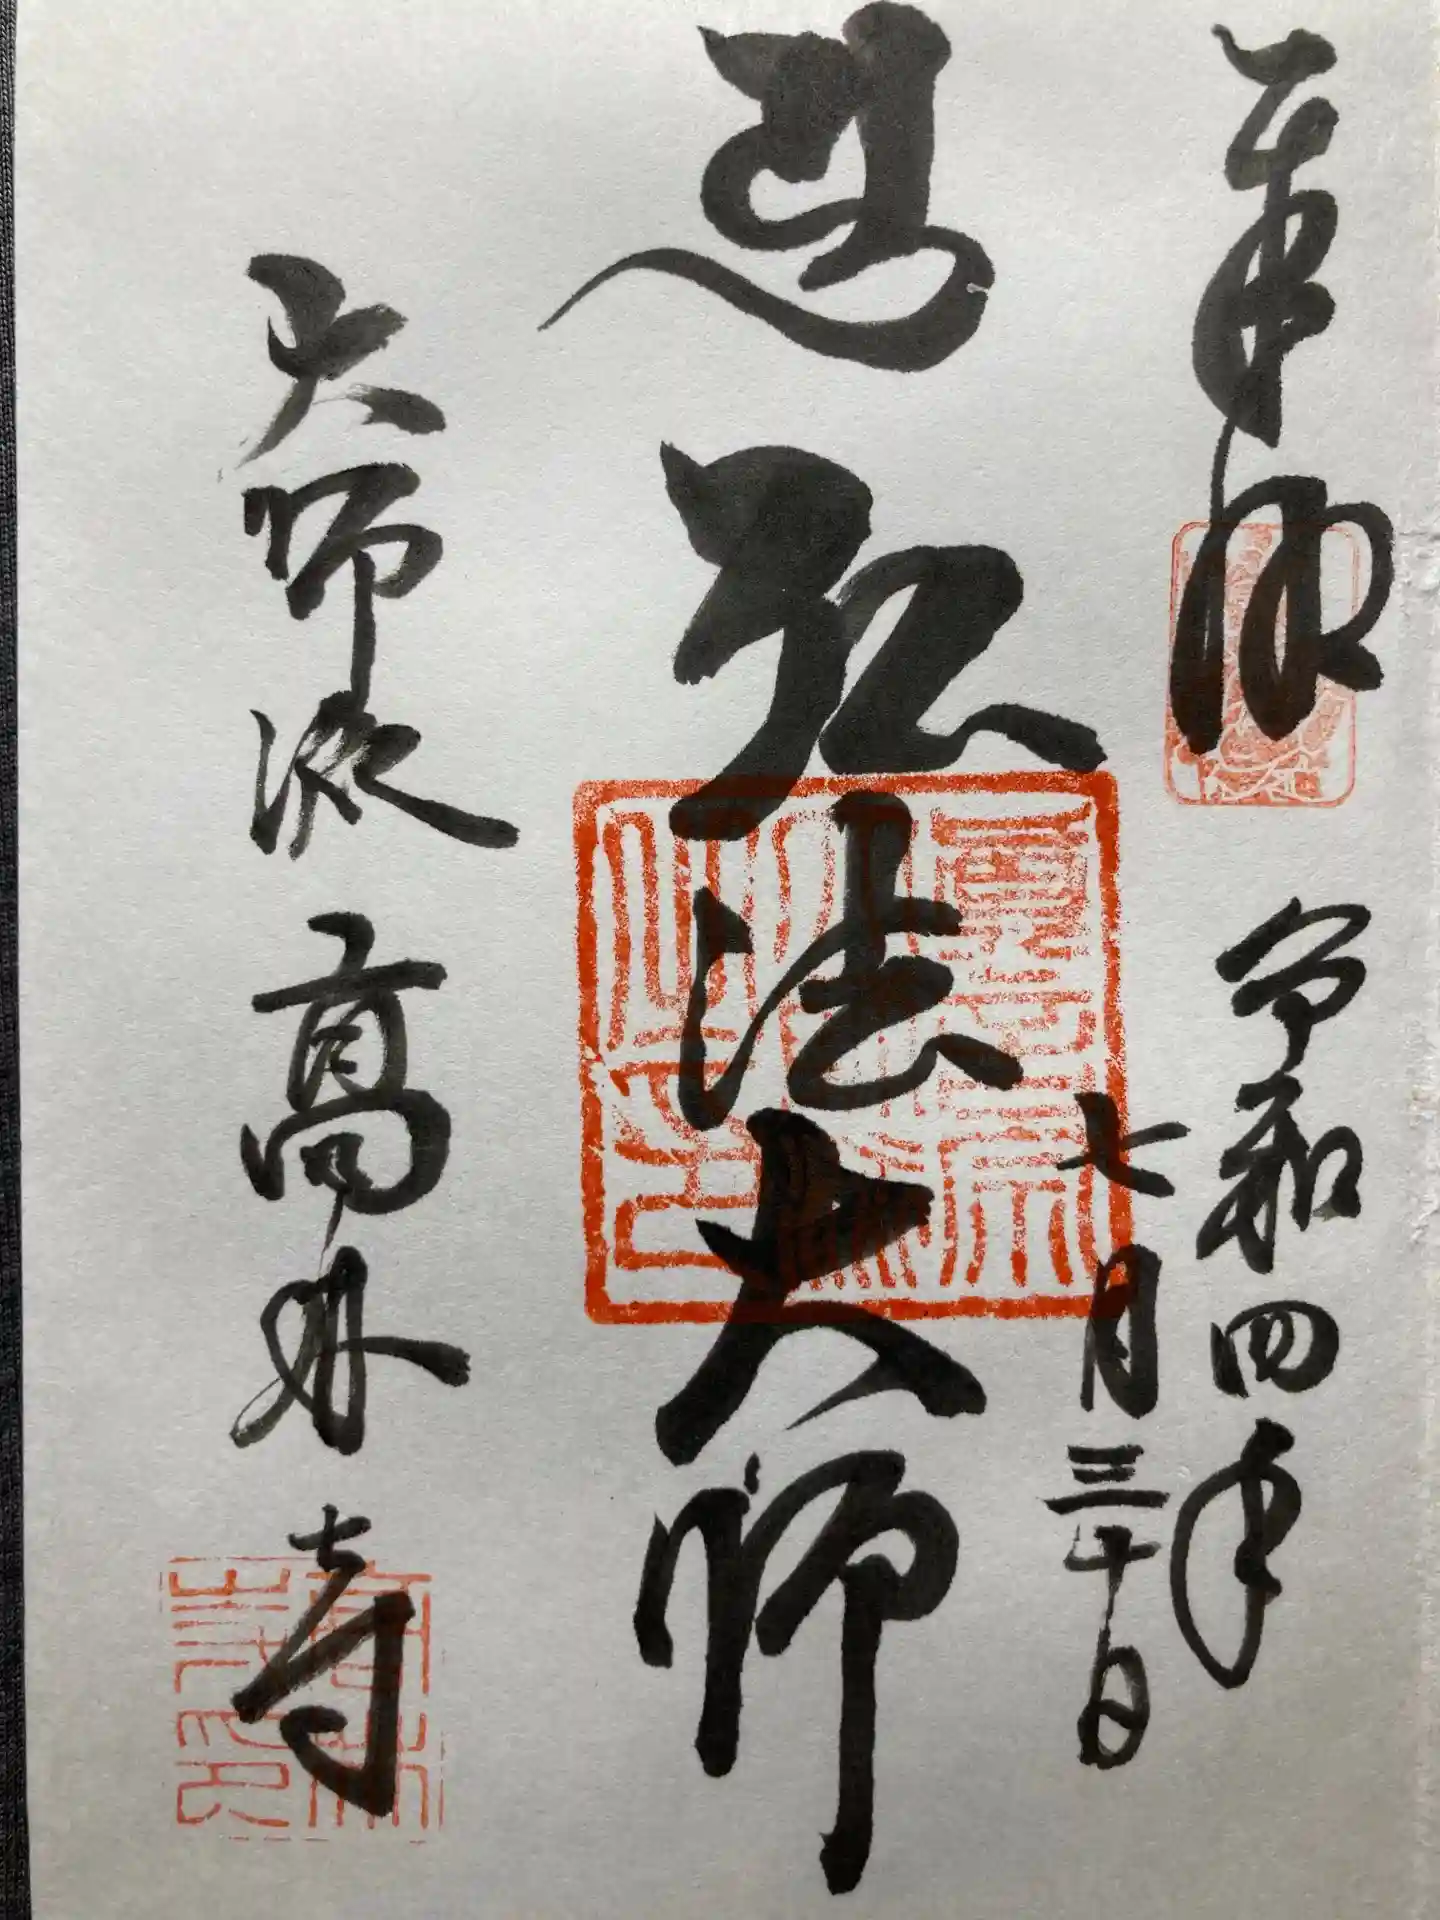 奉拝
令和四年
七月三十日
弘法大師
大師
高林寺